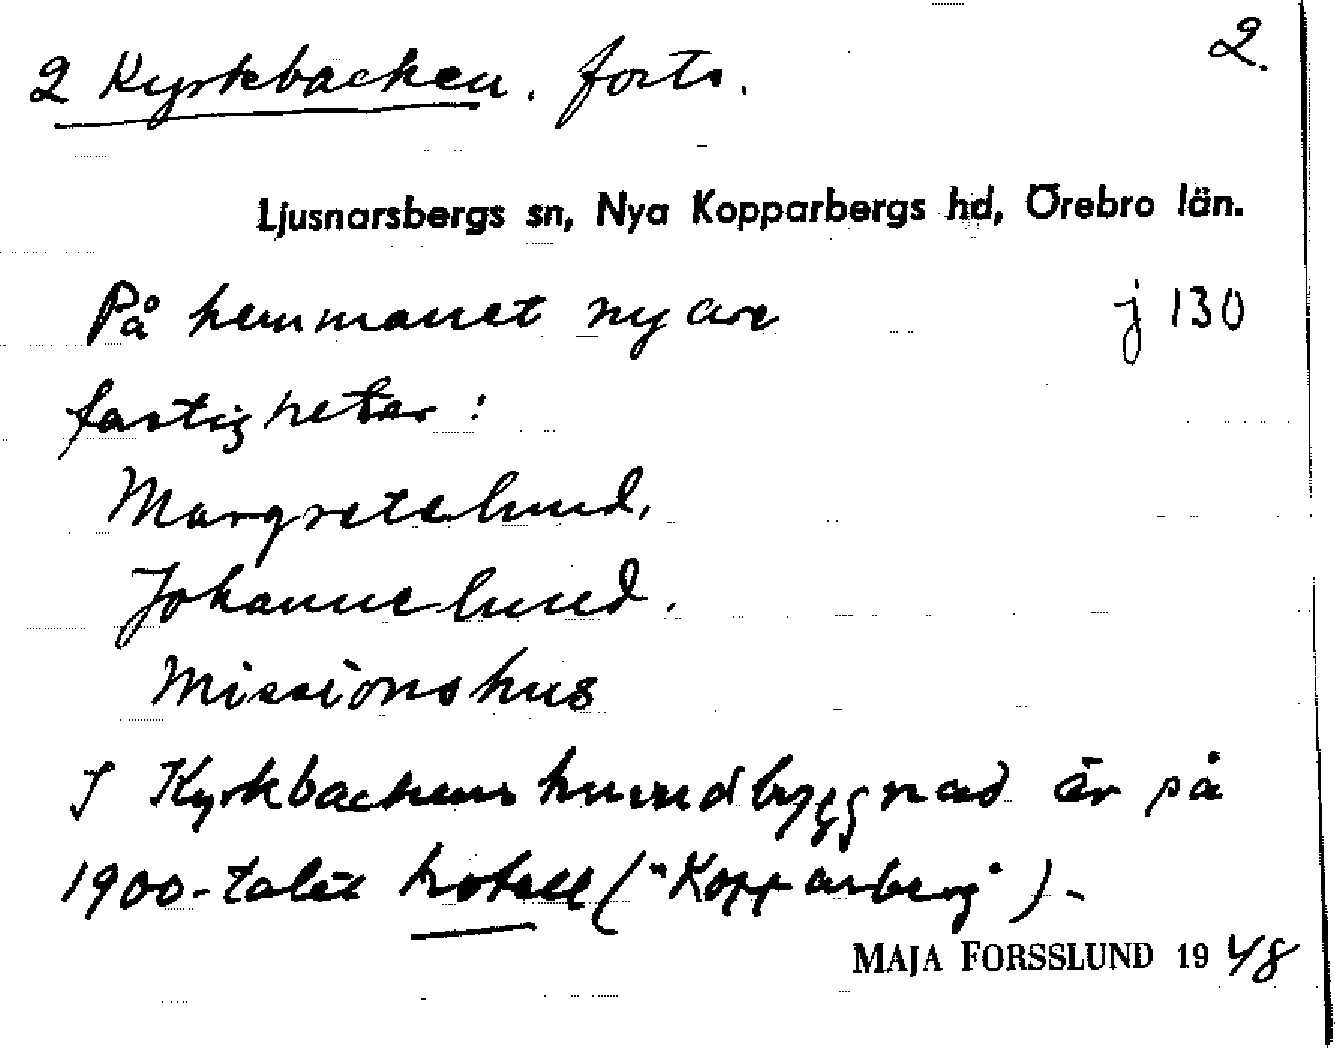 2 Kyrkbacken. forts. 2.
Ljusnarsbergs sn, Nya Kopparbergs hd, Örebro län.
På hemmanet nyare j 130
fastigheter:
Margretelund,
Johannelund.
Missionshus
I Kyrkbackens huvudbyggnad är på
1900-talet hotell ("Kopparberg")-
MAJA FORSSLUND 1948